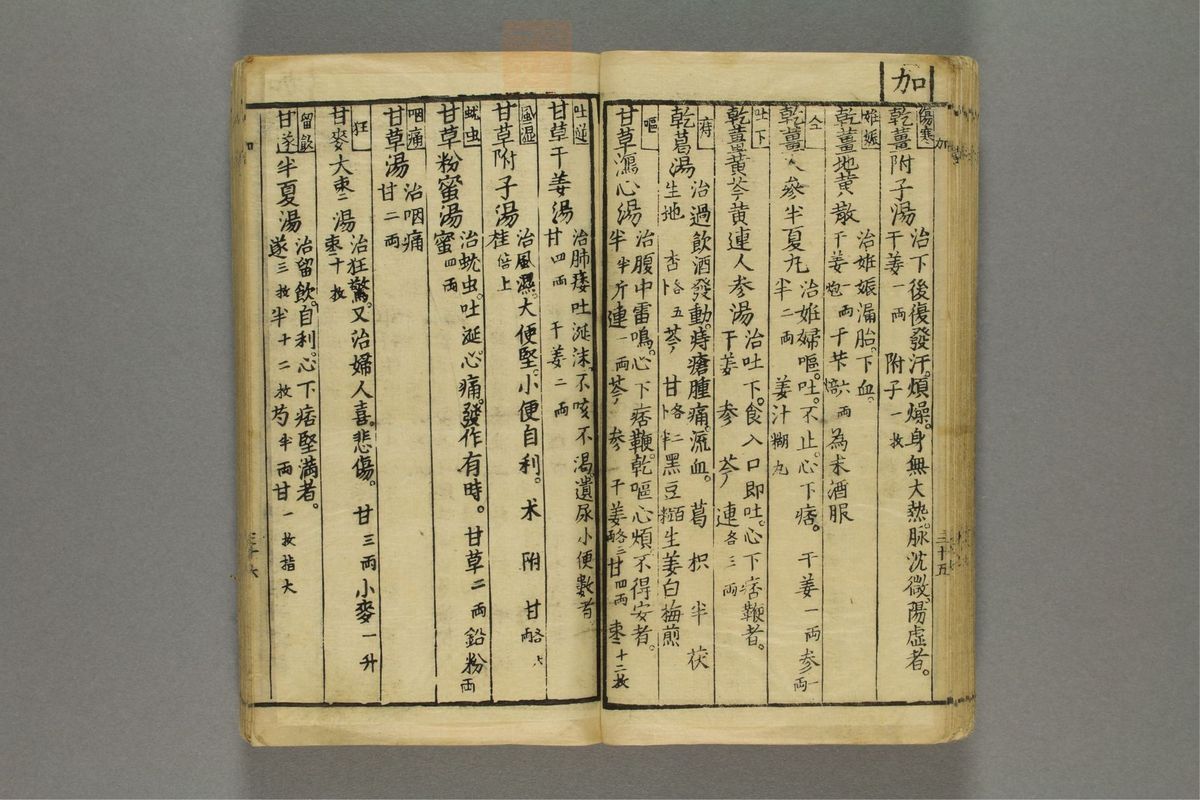 加
傷寒
乾薑附子湯
治下後復發汗。煩燥。身無大熱。脉沈微。陽虛者。
干姜一兩 附子一枚
姙娠
乾薑地黄散
治姙娠漏胎。下血。
干姜炮一兩 干芐焙六兩 為末酒服
仝
乾薑人參半夏丸
治姙婦嘔。吐。不止。心下痞。 干姜一兩 参一兩
半二兩 姜汁糊丸
吐下
乾薑黄芩黄連人参湯
治吐下。食入口即吐。心下痞鞭者。
干姜 参 芩 連各三兩
痔
乾葛湯
治過飲酒發動。痔瘡腫痛。流血。 葛 枳 半 茯
生地 杏各五卜 芩 甘各二卜半 黑豆百粒 生姜白梅煎
嘔
甘草瀉心湯
治腹中雷鳴。心下痞鞭。乾嘔心煩不得安者。
半半斤 連一兩 芩 参 干姜各三兩 甘四兩 棗十二枚
三十五
吐涎
甘草干姜湯
治肺痿吐涎沫。不咳不渴。遺尿小便數者
甘四兩 干姜二兩
風濕
甘草附子湯
治風濕。大便堅。小便自利。 术 附 甘各兩
桂倍上
蚘虫
甘草粉蜜湯
治蚘虫。吐涎心痛。發作有時。甘草二兩 鉛粉兩
蜜四兩
咽痛
甘草湯
治咽痛
甘二兩
狂
甘麥大棗湯
治狂驚。又治婦人喜。悲傷。 甘三兩 小麥一升
棗十枚
留飲
甘遂半夏湯
治留飲。自利。心下痞堅滿者。
遂三枚 半十二枚 芍半兩 甘一枚指大